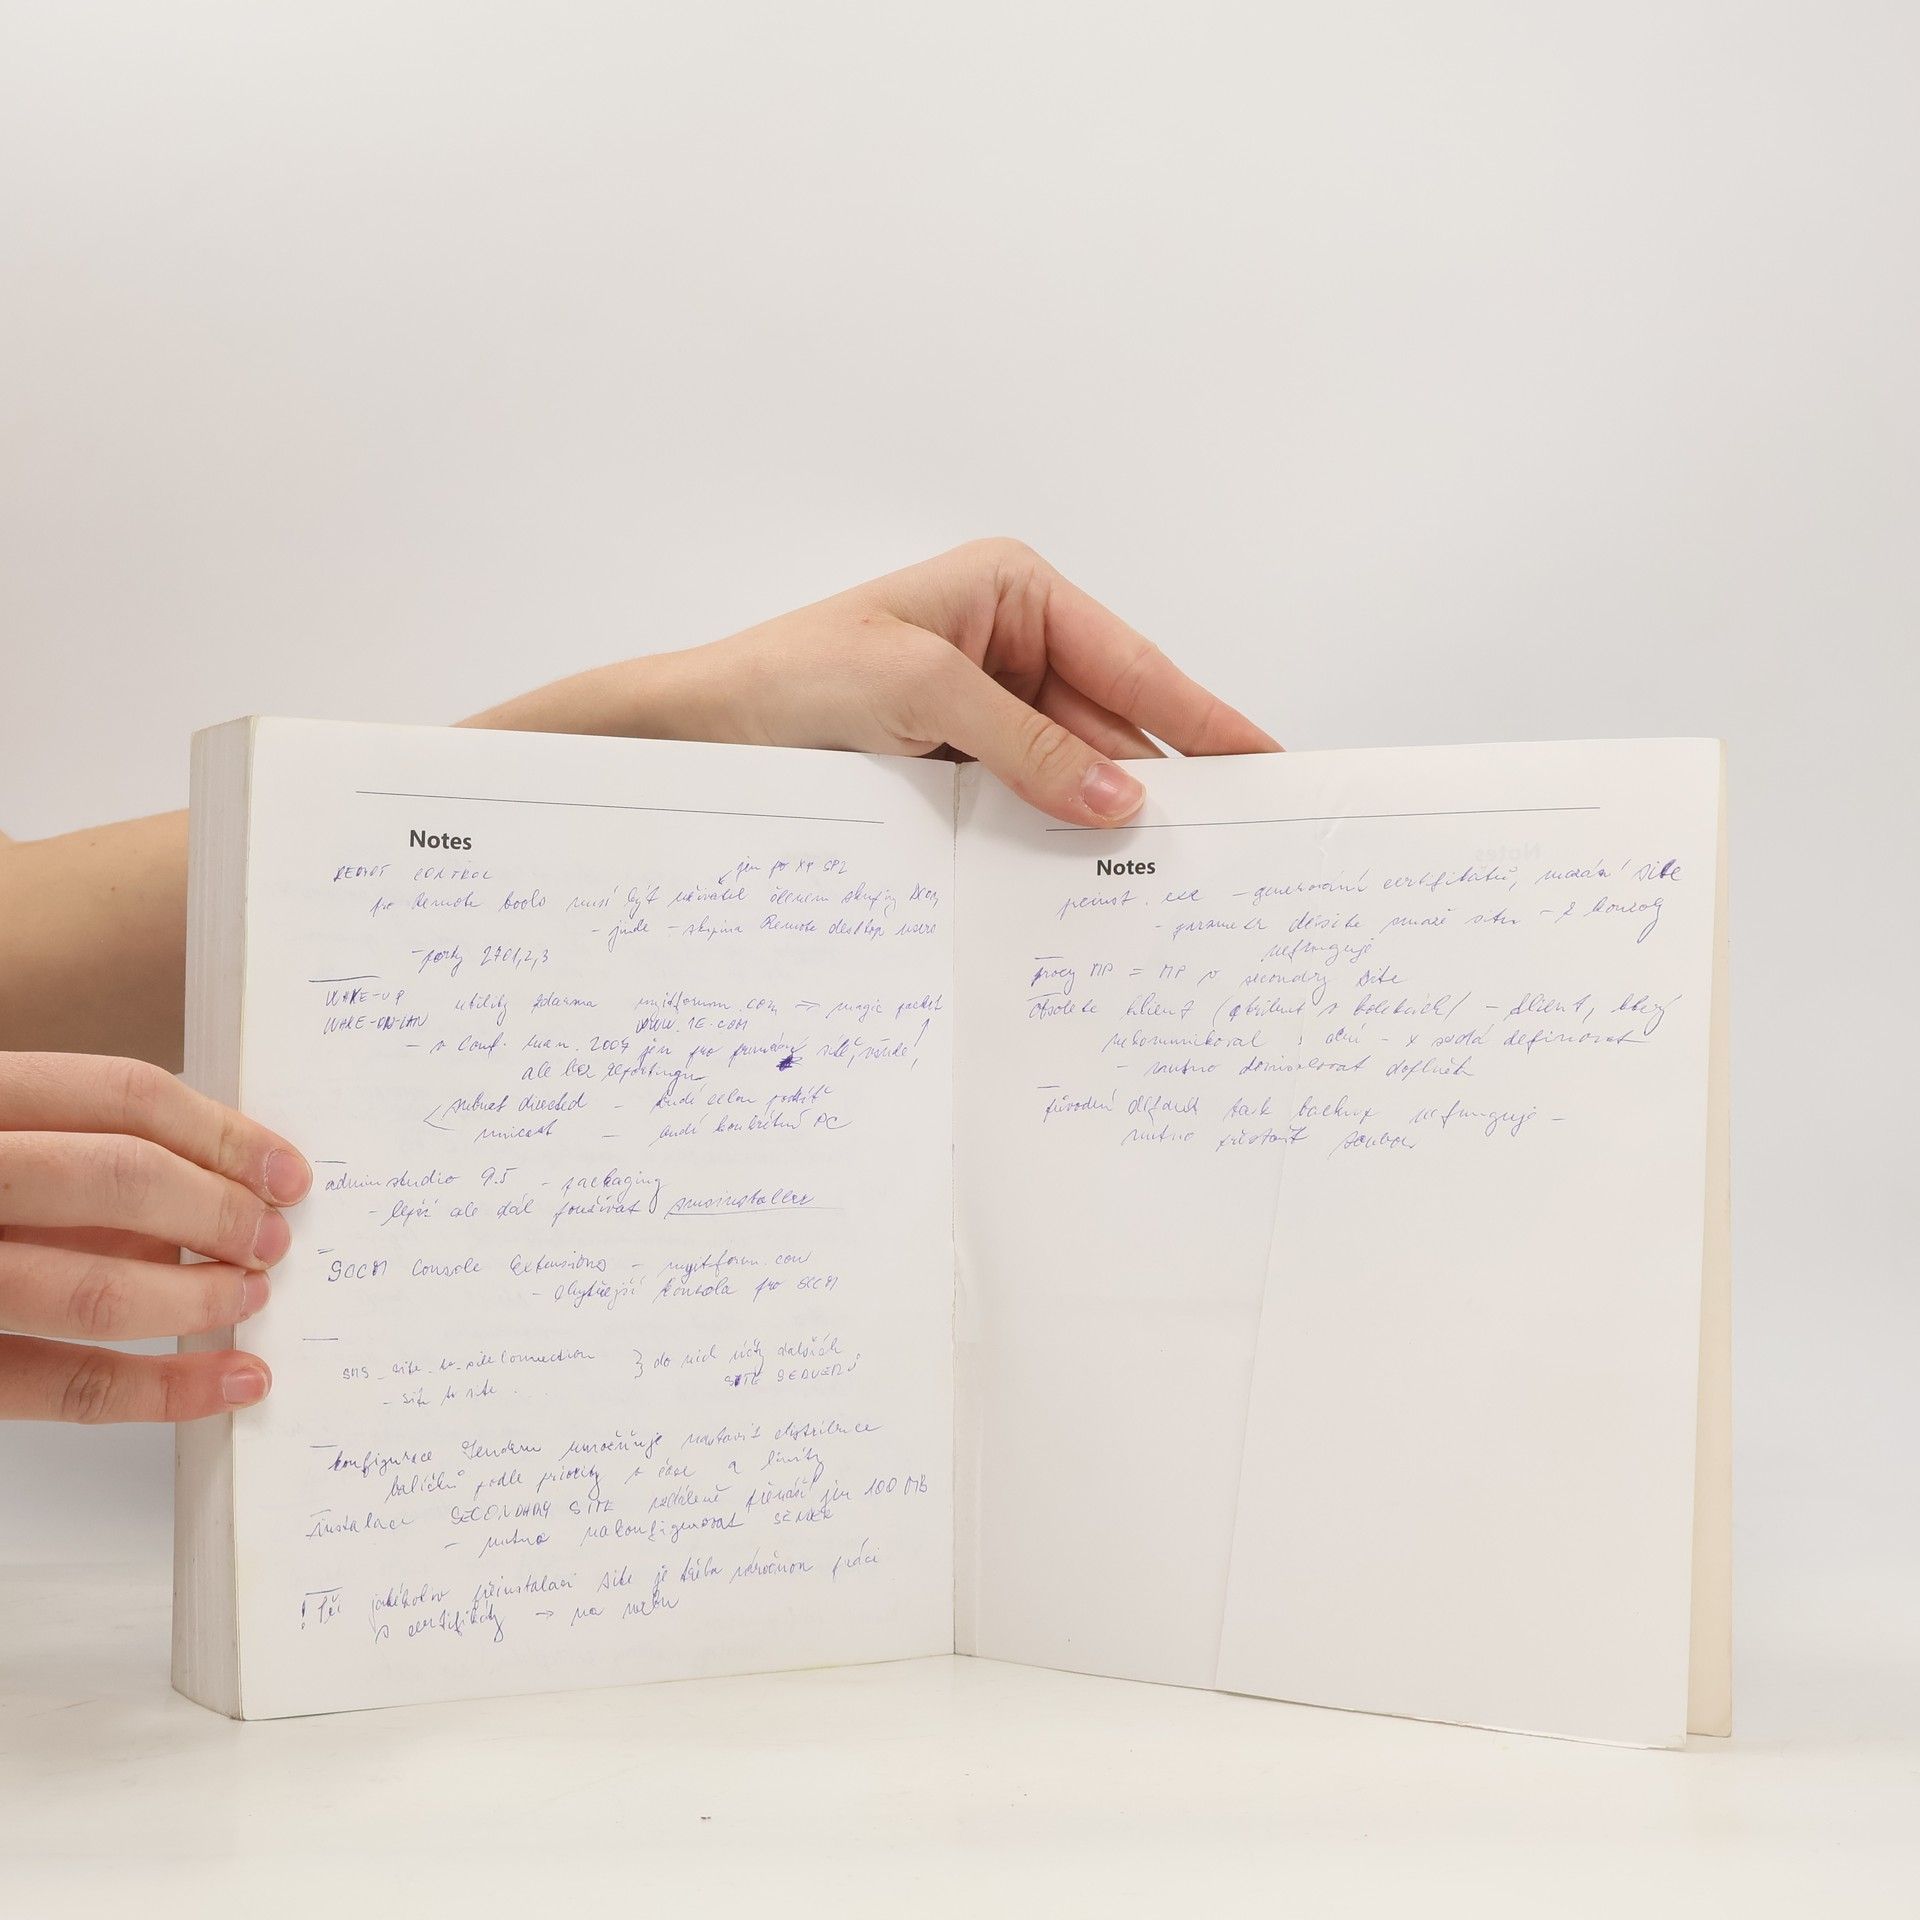 Notes
REMOT CONTROL
jen po XP SP2
pro Remote tools musí být uživatel členem skupiny
- jinde - skupina Remote desktop users
- porty 2701,2,3
WAKE-UP utility zdarma myitforum.com => magic packet
WAKE-ON-LAN www.1E.COM
- v Conf. man. 2007 jen pro primární sítě, všude!
ale bez reportingu
subnet directed - budí celou podsíť
unicast - budí konkrétní PC
adminstudio 9.5 - packaging
- lepší ale dál používat smsinstaller
SCCM Console Extensions - myitforum.com
- chytřejší konzola pro SCCM
SMS_site_to_siteConnection } do nich účty dalších
- site to site ... SITE SERVERŮ
konfigurace Senderu umožňuje nastavit distribuce
balíčků podle priority v čase a limity
instalace SECONDARY SITE vzdáleně přenáší jen 100 MB
- nutno nakonfigurovat SENDER
! Při jakékoliv přeinstalaci site je třeba náročnou práci
s certifikáty -> na webu
Notes
preinst.exe - generování certifikátů, mazání site
- parametr delsite smaže site - z konzoly
nefunguje
proxy MP = MP v secondary site
obsolete klient (atribut v kolekcích) - klient, který
nekommunikoval dní - x se dá definovat
- nutno doinstalovat doplněk
původní default task backup nefunguje -
nutno přestavit soubor